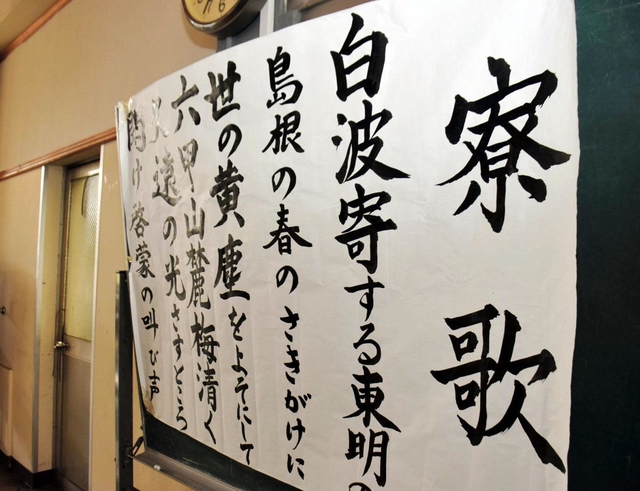 寮歌
白波寄する東明の
島根の春のさきがけに
世の黄塵をよそにして
六甲山麓梅清く
久遠の光さすところ
聞け啓蒙の叫び声